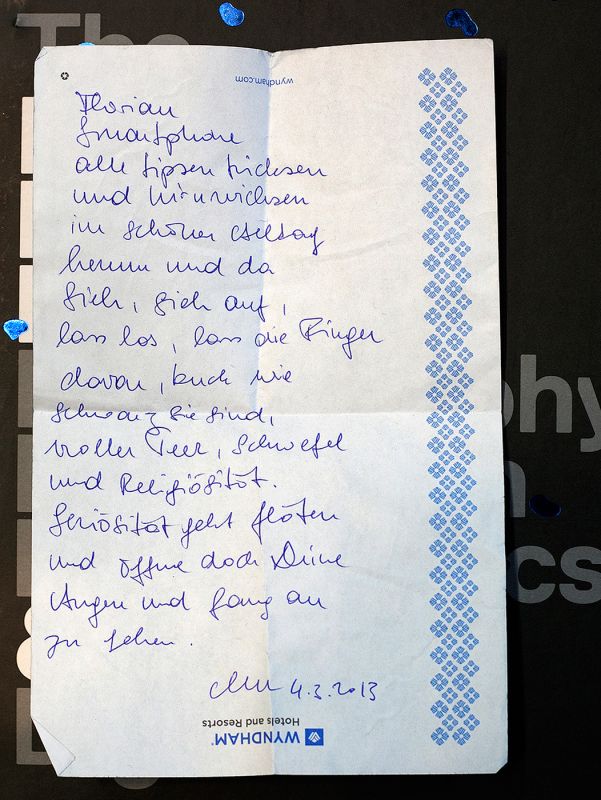 The
wyndham.com
Florian
Smartphone
alle tipsen tricksen
und
im schönen Alltag
herum und da
Sieh, sieh auf,
lass los, lass die Finger
davon, kuck wie
schwarz sie sind,
voller Teer, Schwefel
und Religiösität.
Seriösität geht flöten
und öffne doch Deine
Augen und fang an
zu sehen.
4.3.2013
WYNDHAM
Hotels and Resorts
phy
n
ics
&